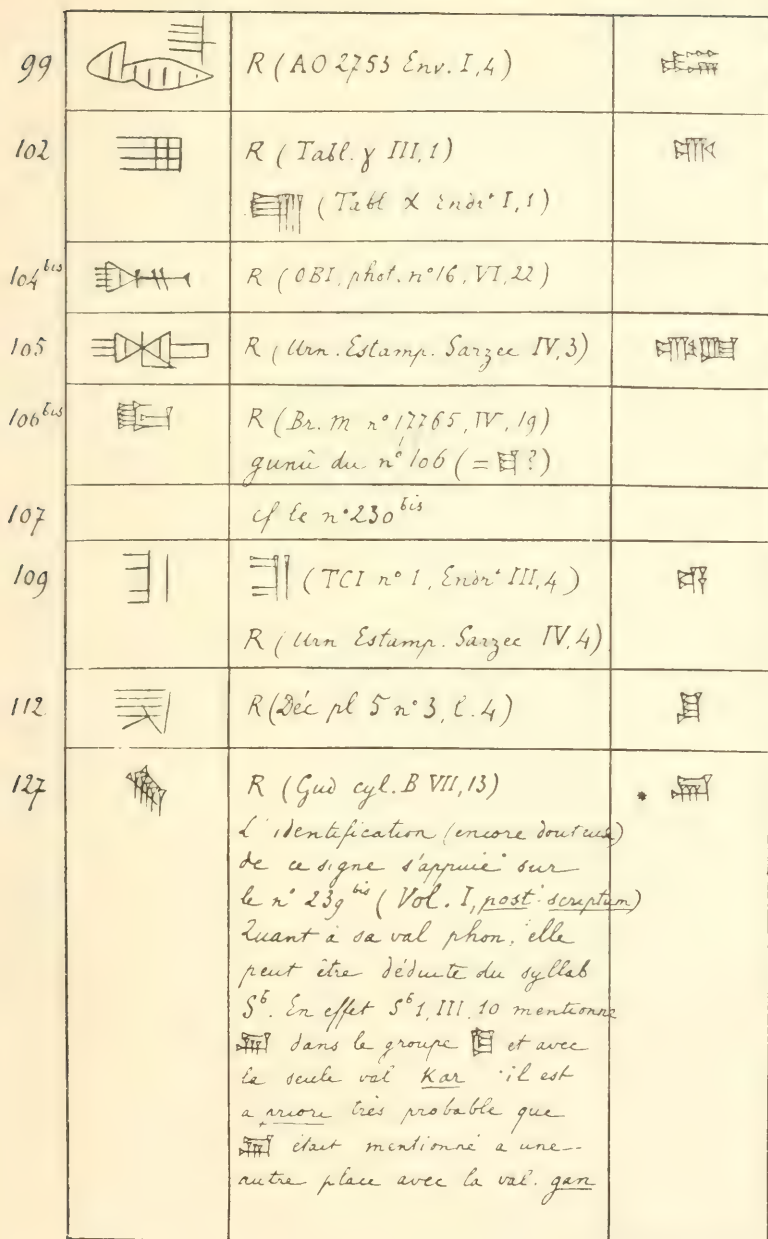 99 R (AO 2753 Env. I, 4)
102 R (Tabl. γ III, 1)
(Tabl α Endrt I, 1)
104 bis R (OBI, phot. n° 16, VI, 22)
105 R (Urn. Estamp. Sarzec IV, 3)
106 bis R (Br. M n° 17765, IV, 19)
gunû du n° 106 (= ?)
107 cf le n° 230 bis
109 (TCI n° 1, Endrt III, 4)
R (Urn Estamp. Sarzec IV, 4)
112 R (Déc pl 5 n° 3, l. 4)
127 R (Gud cyl. B VII, 13)
L'identification (encore douteuse)
de ce signe s'appuie sur
le n° 239 bis (Vol. I, post-scriptum)
Quant à sa val phon, elle
peut être déduite du syllab
Sb. En effet Sb 1, III, 10 mentionne
dans le groupe et avec
la seule val Kar il est
a priori très probable que
était mentionné a une
autre place avec la val. gan